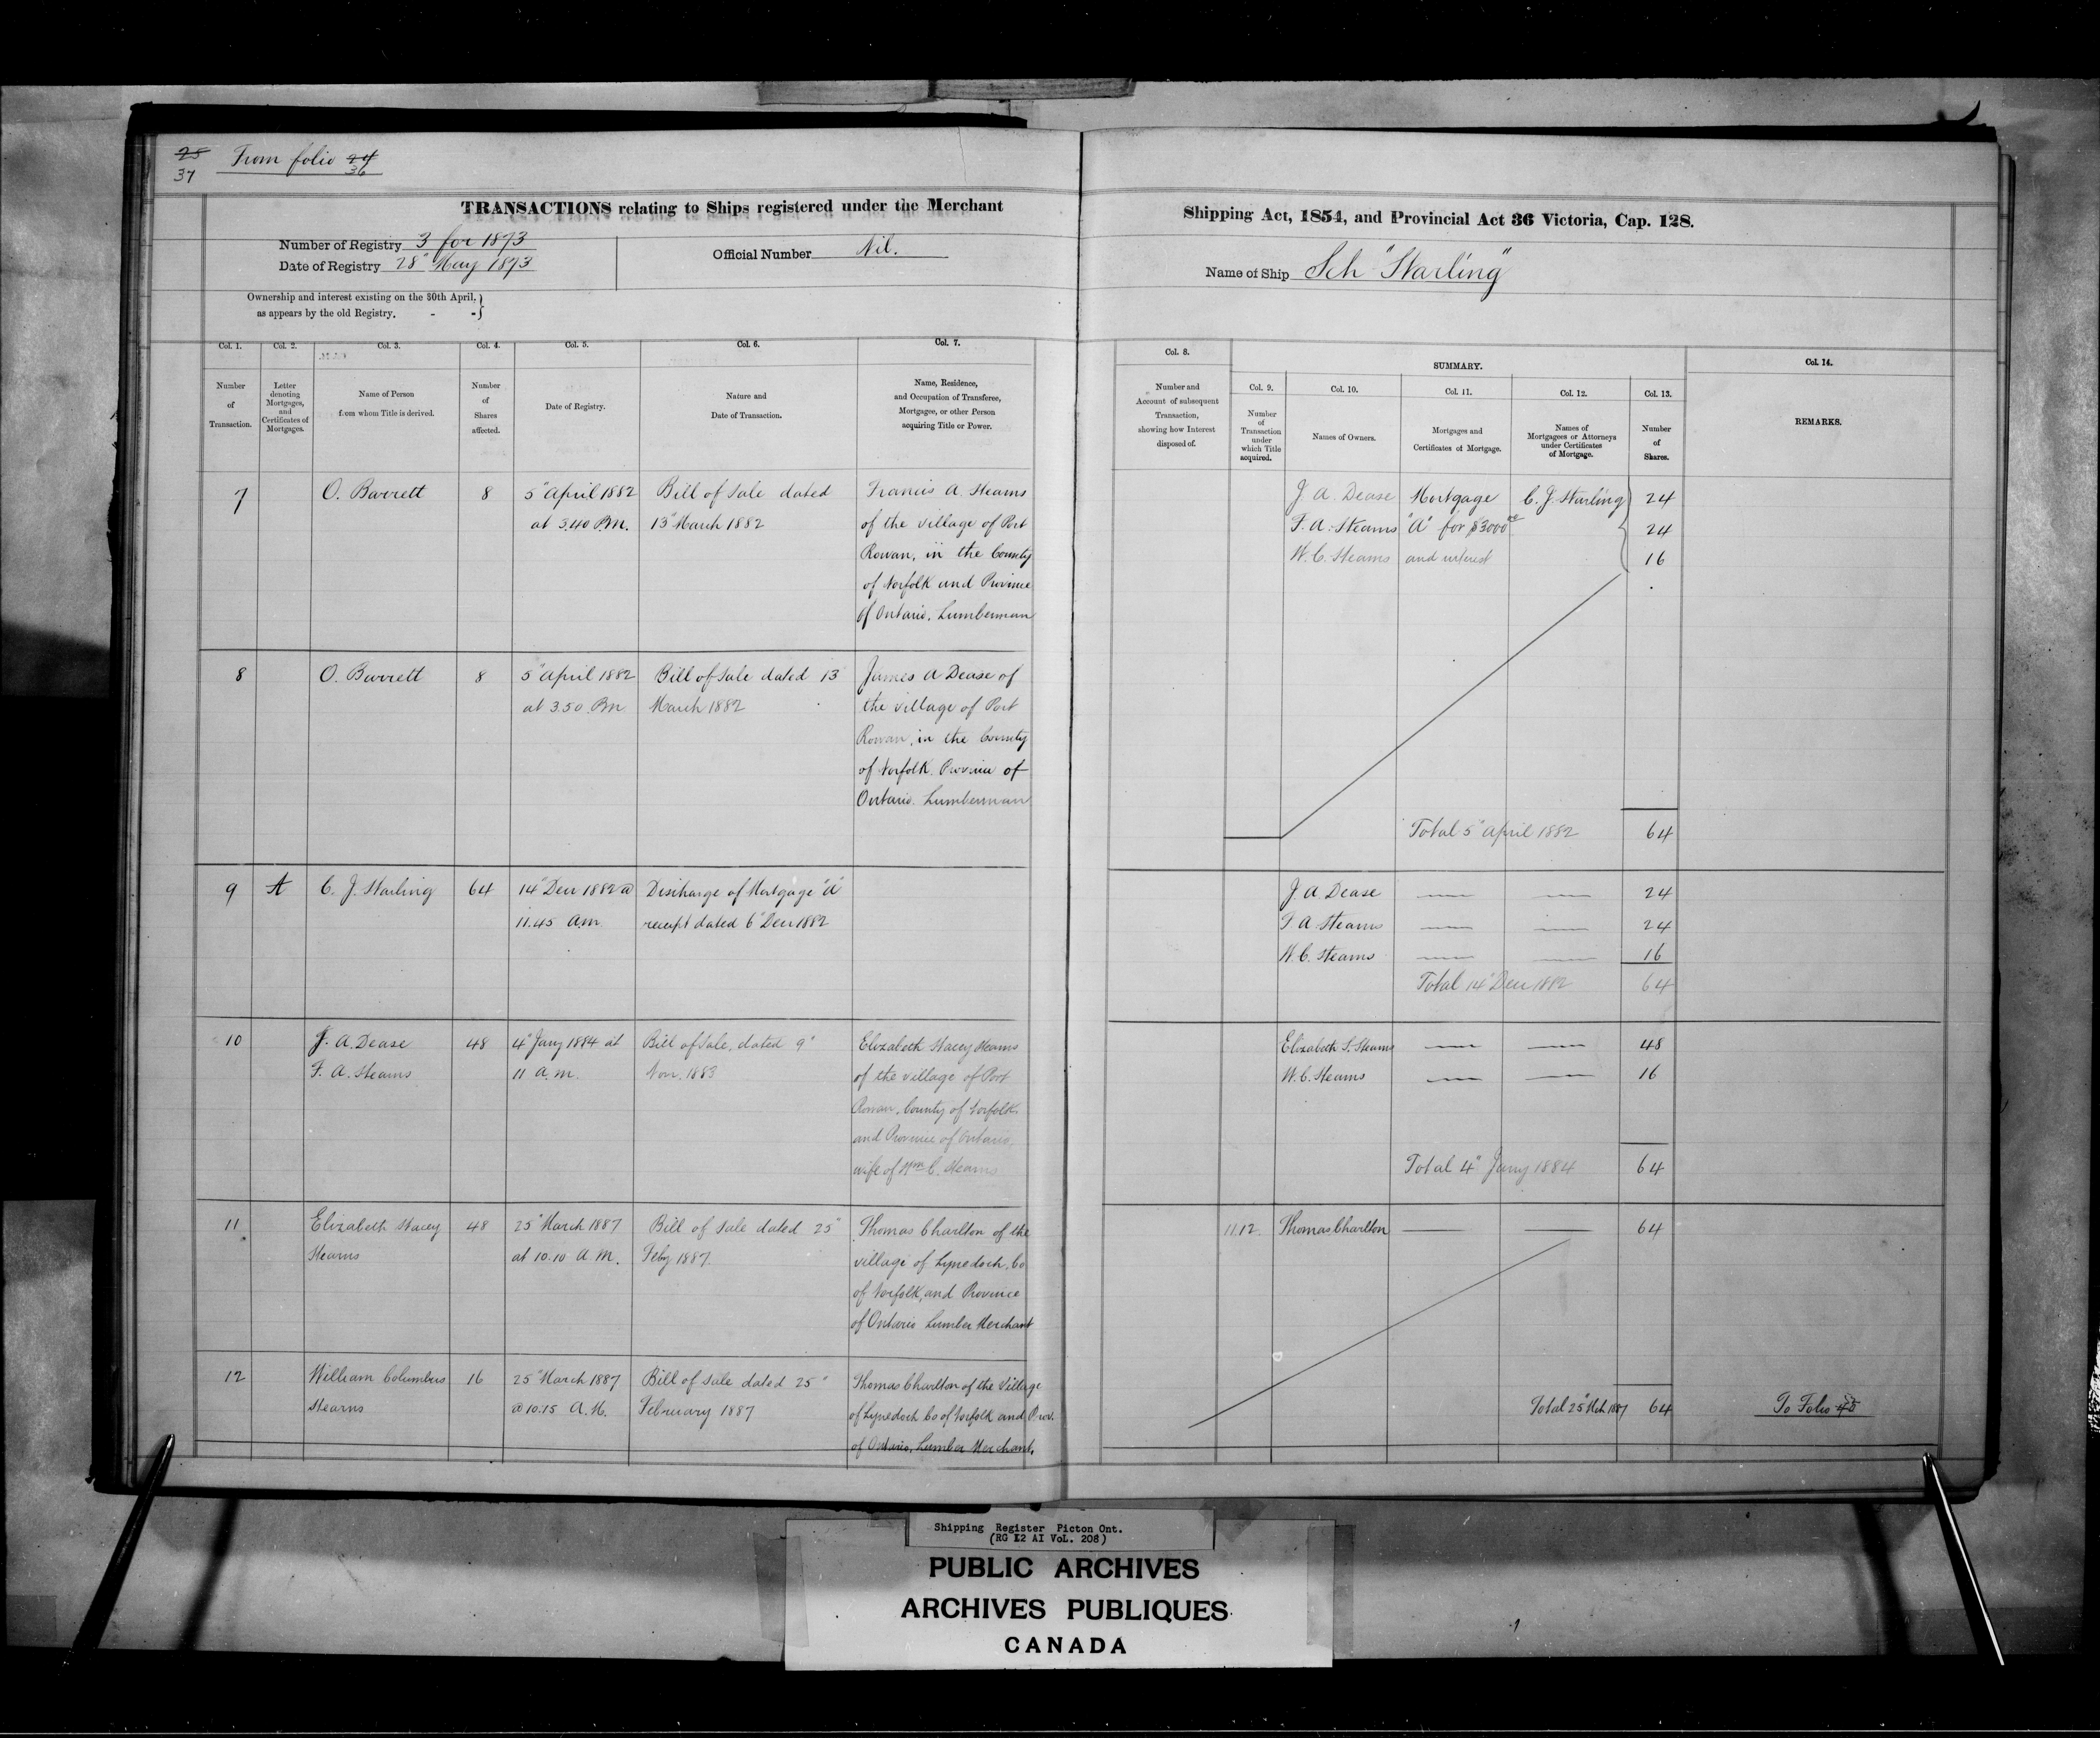 25 From folio 24
37 36
TRANSACTIONS relating to Ships registered under the Merchant Shipping Act, 1854, and Provincial Act 36 Victoria, Cap. 128.
Number of Registry 3 for 1873
Date of Registry 28" May 1873
Official Number Nil.
Name of Ship Sch "Starling"
Ownership and interest existing on the 30th April,
as appears by the old Registry. - -
Col. 1. Col. 2. Col. 3. Col. 4. Col. 5. Col. 6. Col. 7.
Number of Transaction.
Letter denoting Mortgages, and Certificates of Mortgages.
Name of Person from whom Title is derived.
Number of Shares affected.
Date of Registry.
Nature and Date of Transaction.
Name, Residence, and Occupation of Transferee, Mortgagee, or other Person acquiring Title or Power.
Col. 8. SUMMARY. Col. 14.
Col. 9. Col. 10. Col. 11. Col. 12. Col. 13.
Number and Account of subsequent Transaction, showing how Interest disposed of.
Number of Transaction under which Title acquired.
Names of Owners.
Mortgages and Certificates of Mortgage.
Names of Mortgagees or Attorneys under Certificates of Mortgage.
Number of Shares.
REMARKS.
7 O. Barrett 8 5" April 1882 Bill of Sale dated Francis A. Stearns
at 3.40 P.M. 13" March 1882 of the village of Port
Rowan, in the County
of Norfolk and Province
of Ontario, Lumberman
J. A. Dease Mortgage C. J. Starling 24
F. A. Stearns "A" for $3000 24
W. C. Stearns and interest 16
8 O. Barrett 8 5" April 1882 Bill of Sale dated 13 James A Dease of
at 3.50 P.m March 1882 the village of Port
Rowan, in the County
of Norfolk. Province of
Ontario. Lumberman
Total 5" April 1882 64
9 A C. J. Starling 64 14" Decr 1882 @ Discharge of Mortgage "A"
11.45 A.m. receipt dated 6" Decr 1882
J. A. Dease — — 24
F A Stearns — — 24
W. C. Stearns — — 16
Total 14" Decr 1882 64
10 J. A. Dease 48 4" Jany 1884 at Bill of Sale, dated 9" Elizabeth Stacey Stearns
F. A. Stearns 11 a.m. Nov. 1883 of the village of Port
Rowan, County of Norfolk
and Province of Ontario,
wife of Wm C. Stearns
Elizabeth S. Stearns — — 48
W. C. Stearns — — 16
Total 4" Jany 1884 64
11 Elizabeth Stacey 48 25" March 1887 Bill of Sale dated 25" Thomas Charlton of the
Stearns at 10.10 A M. Feby 1887. village of Lynedoch, Co
of Norfolk, and Province
of Ontario Lumber Merchant
11.12. Thomas Charlton — — 64
12 William Columbus 16 25" March 1887 Bill of Sale dated 25" Thomas Charlton of the Village
Stearns @ 10.15 A.M. February 1887 of Lynedoch Co of Norfolk and Prov.
of Ontario, Lumber Merchant.
Total 25" Mch 1887 64 To Folio
Shipping Register Picton Ont.
(RG 12 AI VoL. 208)
PUBLIC ARCHIVES
ARCHIVES PUBLIQUES
CANADA